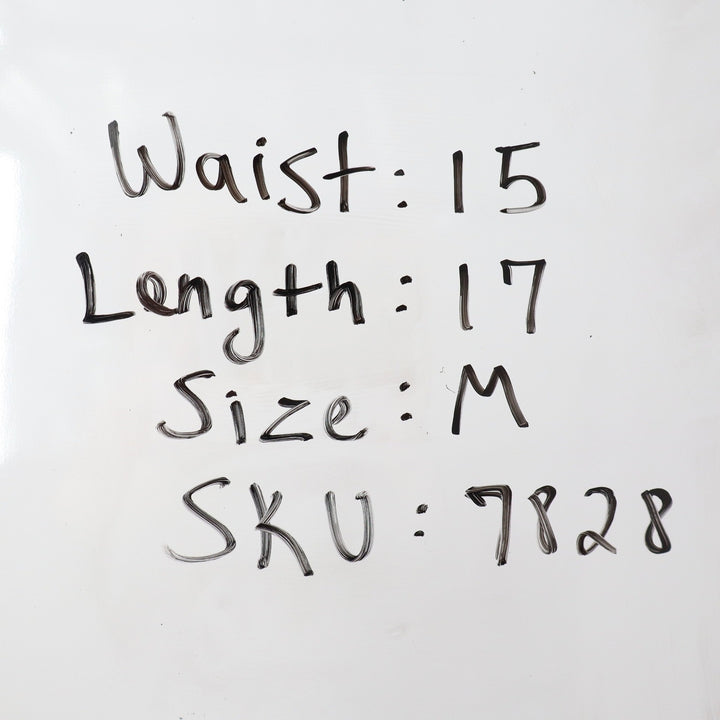 Waist: 15
Length: 17
Size: M
SKU: 7828